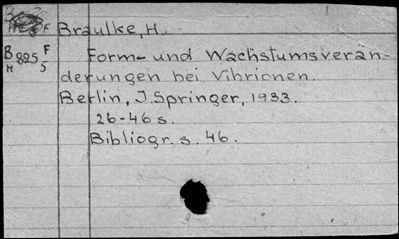 Braulke, H.
B 895 F
H 5
Form- und Wachstumsverän-
derungen bei Vibrionen.
Berlin, J. Springer, 1933.
26-46 s.
Bibliogr. s. 46.